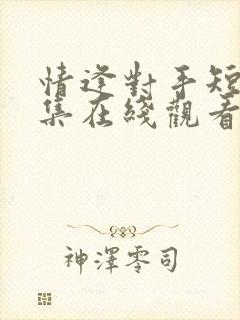 情逢對手短
集在綫觀看
神澤零司